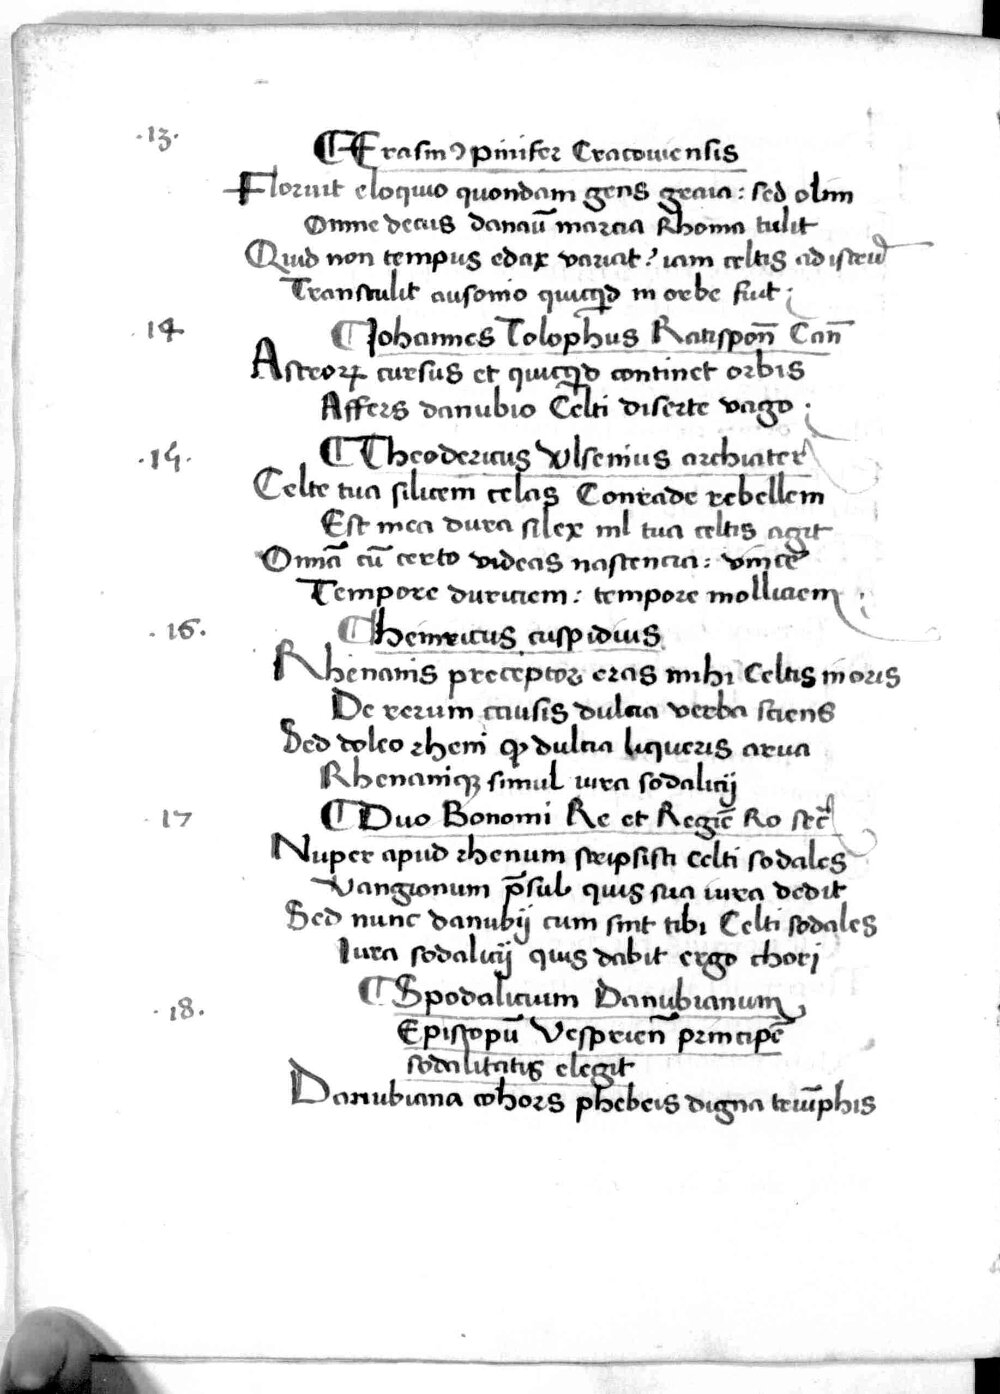 ·13·
¶ Erasmꝰ pinifer Cracouiensis
Floruit eloquio quondam gens graia: sed olim
Omne decus danaū marcia Rhoma tulit
Quid non tempus edax variat? iam celtis ad istrū
Transtulit ausonio quicqͥd in orbe fuit;
·14
¶ Johannes Tolophus Ratisponn̄ Cann̄
Astroꝝ cursus et quicqͥd continet orbis
Affers danubio Celti diserte vago;
·15·
¶ Theodericus Vlsenius archiater
Celte tua silicem celas Conrade rebellem
Est mea dura silex nil tua celtis agit
Omīa cū certo videas nascencia: vincē
Tempore duriciem: tempore molliciem;
·16·
¶ heinricus cuspidius
Rhenanis preceptor eras mihi Celtis in oris
De rerum causis dulcia verba sciens
Sed doleo rheni ꝙ dulcia liqueris arua
Rhenaniqꝫ simul iura sodalicij
17
¶ Duo Bonomi Re et Regie᷒ Ro secͬ
Nuper apud rhenum scripsisti celti sodales
Vangionum p̄sul quis sua iura dedit
Sed nunc danubij cum sint tibi Celti sodales
Iura sodalicij quis dabit ergo chori
·18·
¶ Spodalicium Danubianum
Episcopū Vesprienn̄ principē
sodalitatis elegit
Danubiana cohors phebeis digna triūphis